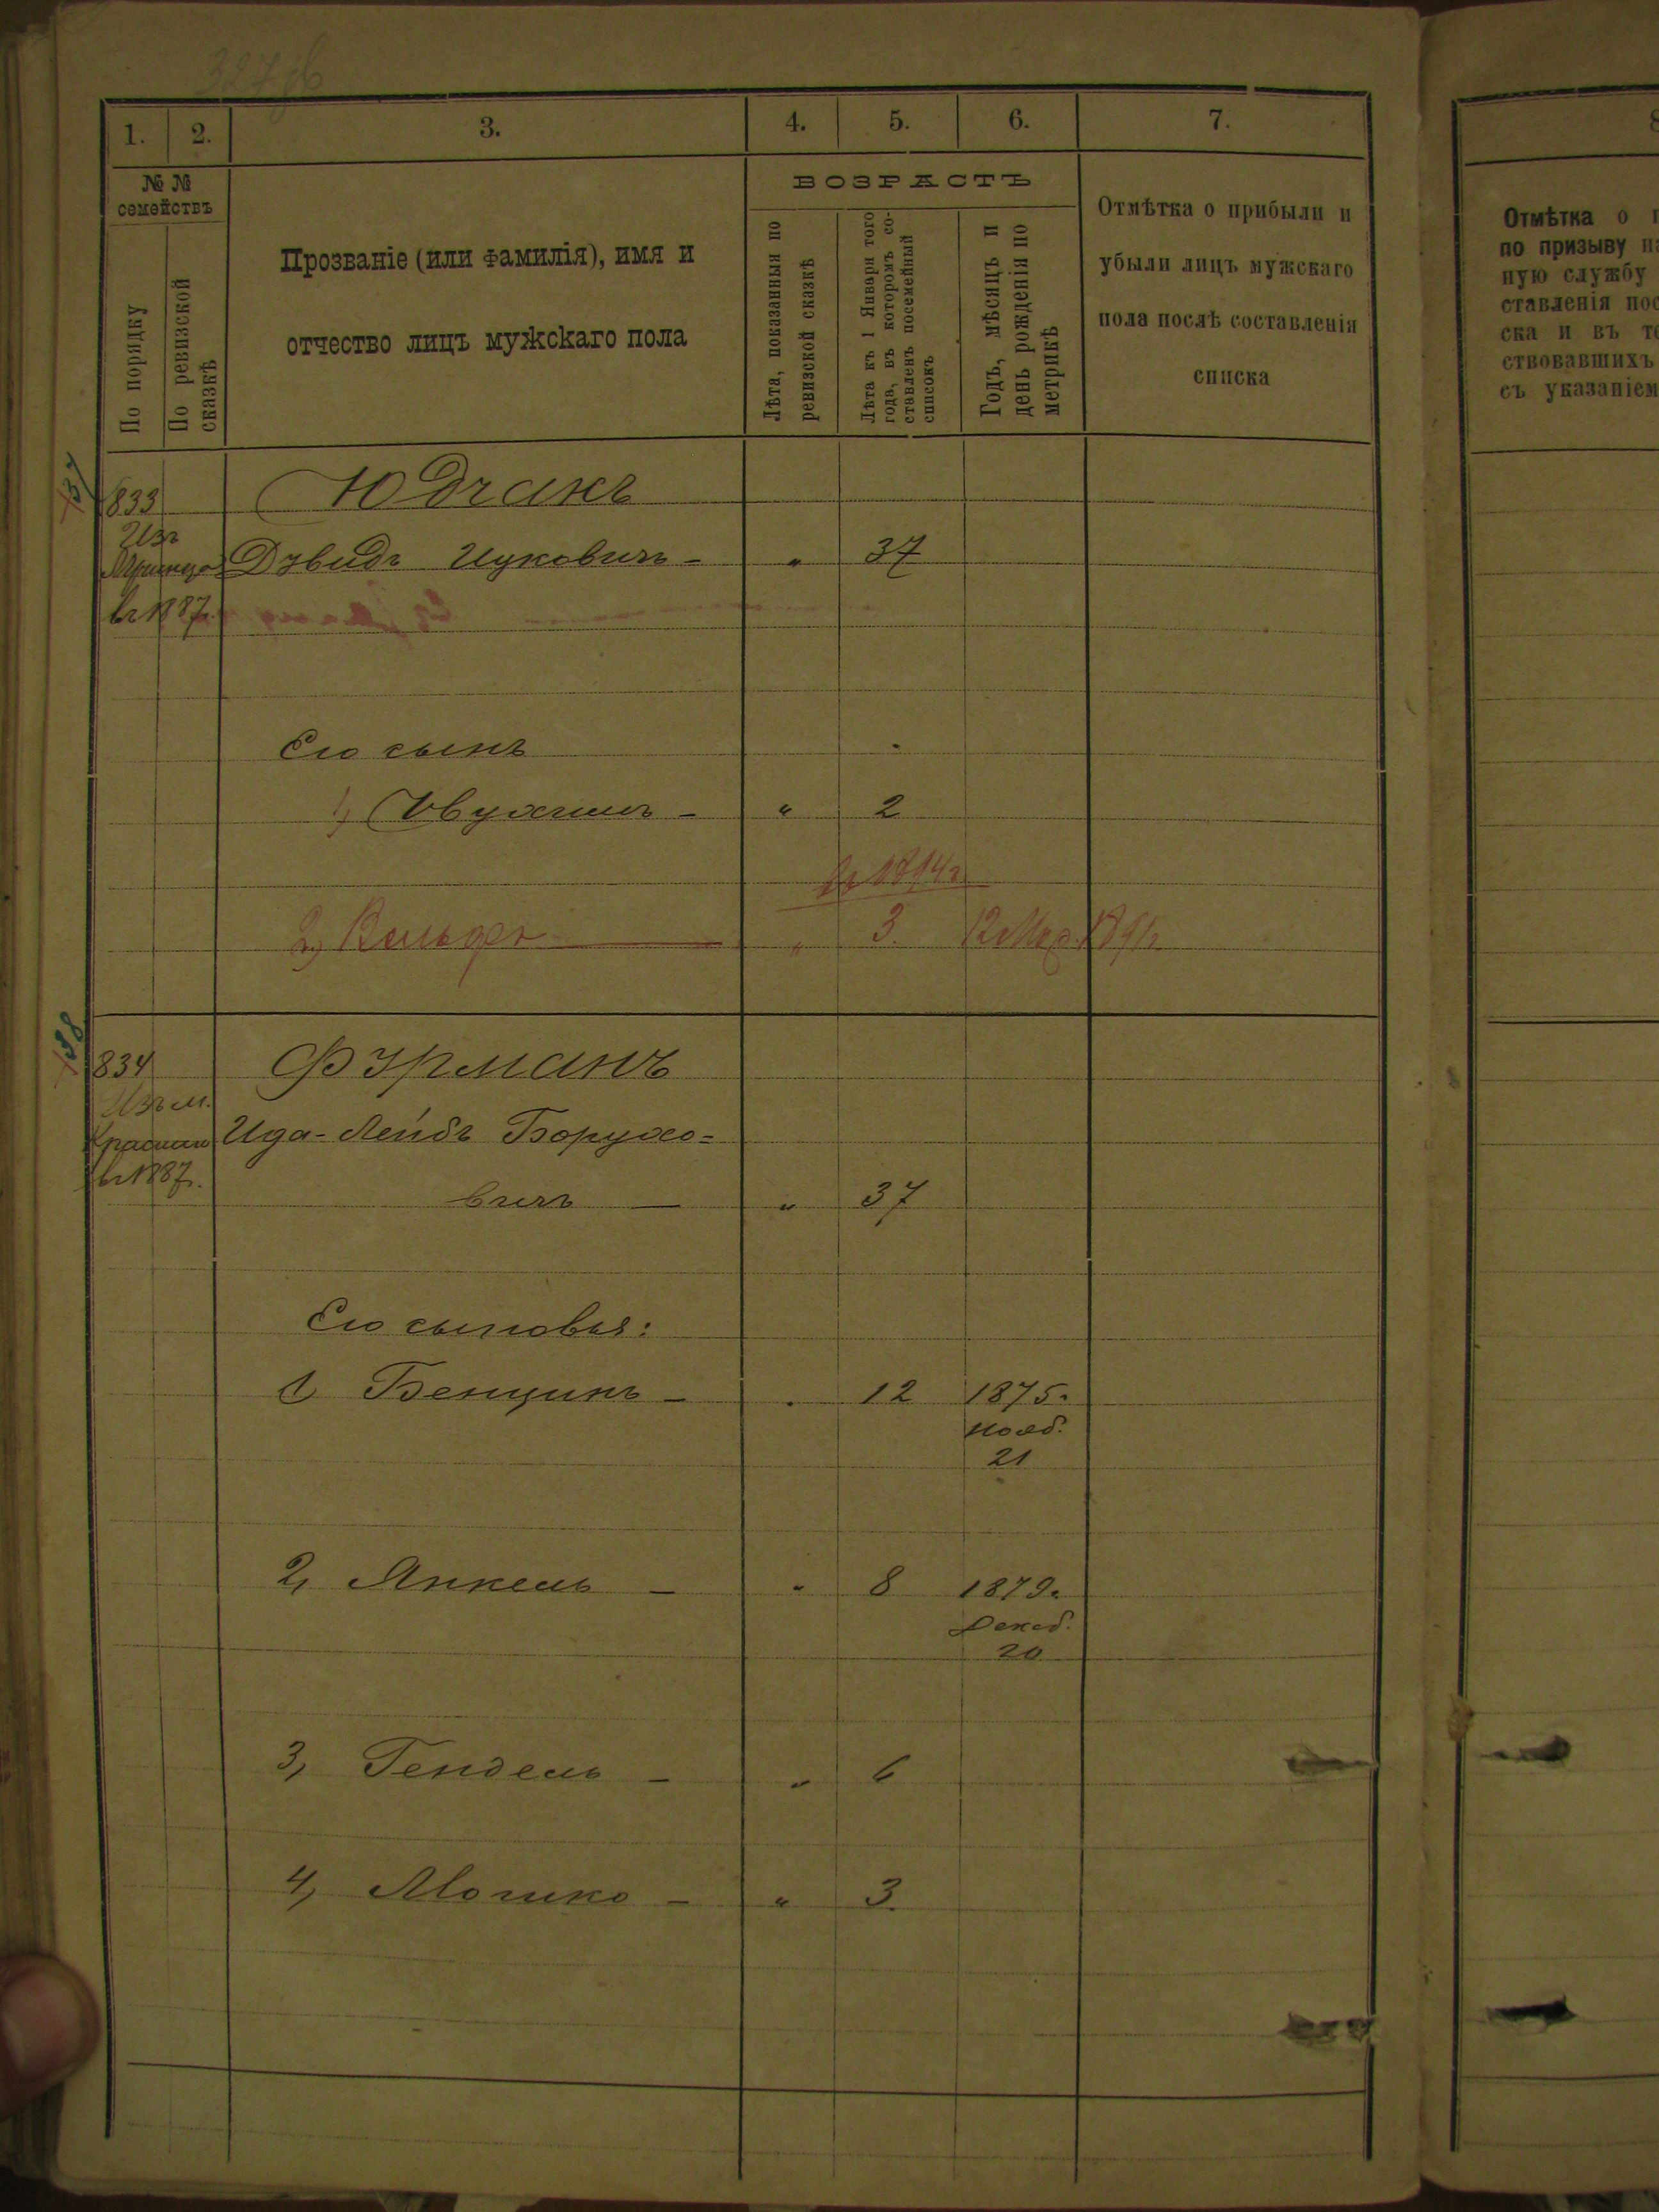 327об
1. 2. 3. 4. 5. 6. 7.
№ №
семействъ
По порядку
По ревизской
сказкѣ
Прозваніе (или фамилія), имя и
отчество лицъ мужскаго пола
ВОЗРАСТЪ
Лѣта, показанныя по
ревизской сказкѣ
Лѣта къ 1 Января того
года, въ которомъ со-
ставленъ посемейный
списокъ
Годъ, мѣсяцъ и
день рожденія по
метрикѣ
Отмѣтка о прибыли и
убыли лицъ мужскаго
пола послѣ составленія
списка
833 Юдчакъ
Изъ
Дэвидъ Ицковичъ - " 37
въ 1887г.
Его сынъ
1) - " 2
въ 1894г
2) Вольфъ " 3. 12 1891г
834 Фэрманъ
Изъ м.
Ида-Лейбъ Борухо=
въ 1887г.
вичъ — " 37
Его сыновья:
1) Бенціинъ - 12 1875г
нояб.
21
2) Янкель — " 8 1879г
Декаб.
20
3) Гендель - " 6
4) Мошко - " 3.
Отмѣтка о
по призыву
ную службу
ставленія
ска и въ
ствовавшихъ
съ указаніем